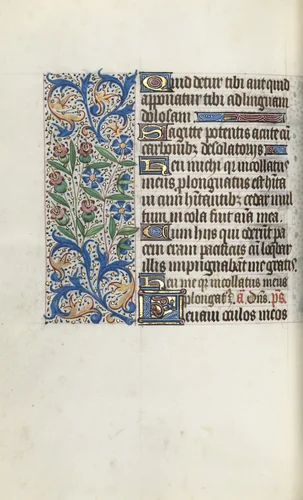 Quid detur tibi aut quid
apponatur tibi ad linguam
dolosam
Sagitte potentis acute cū
carbonibꝫ desolatorijs
Heu michi qꝛ incolatus
meus ꝓlongatus est hita
ui cum hitantibꝫ cedar mul
tum incola fuit aīa mea.
Cum hijs qui oderūt pa
cem eram pacificus cū loq̄bar
illis impugnabāt me gratis
Heu me qꝛ incolatus meus
ꝓlongatꝰ ē. a. Dn̄s. ps.
Leuaui oculos meos